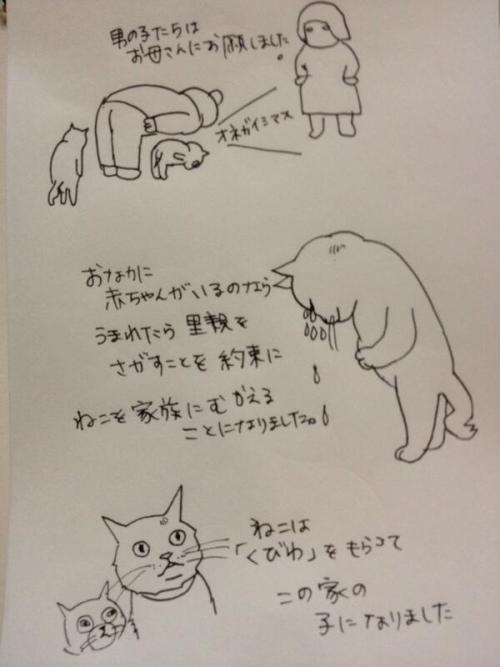 男の子たちは
お母さんにお願いしました。
オネガイシマス
おなかに
赤ちゃんがいるのなら
うまれたら里親を
さがすことを約束に
ねこを家族にむかえる
ことになりました。
ねこは
「くびわ」をもらって
この家の
子になりました